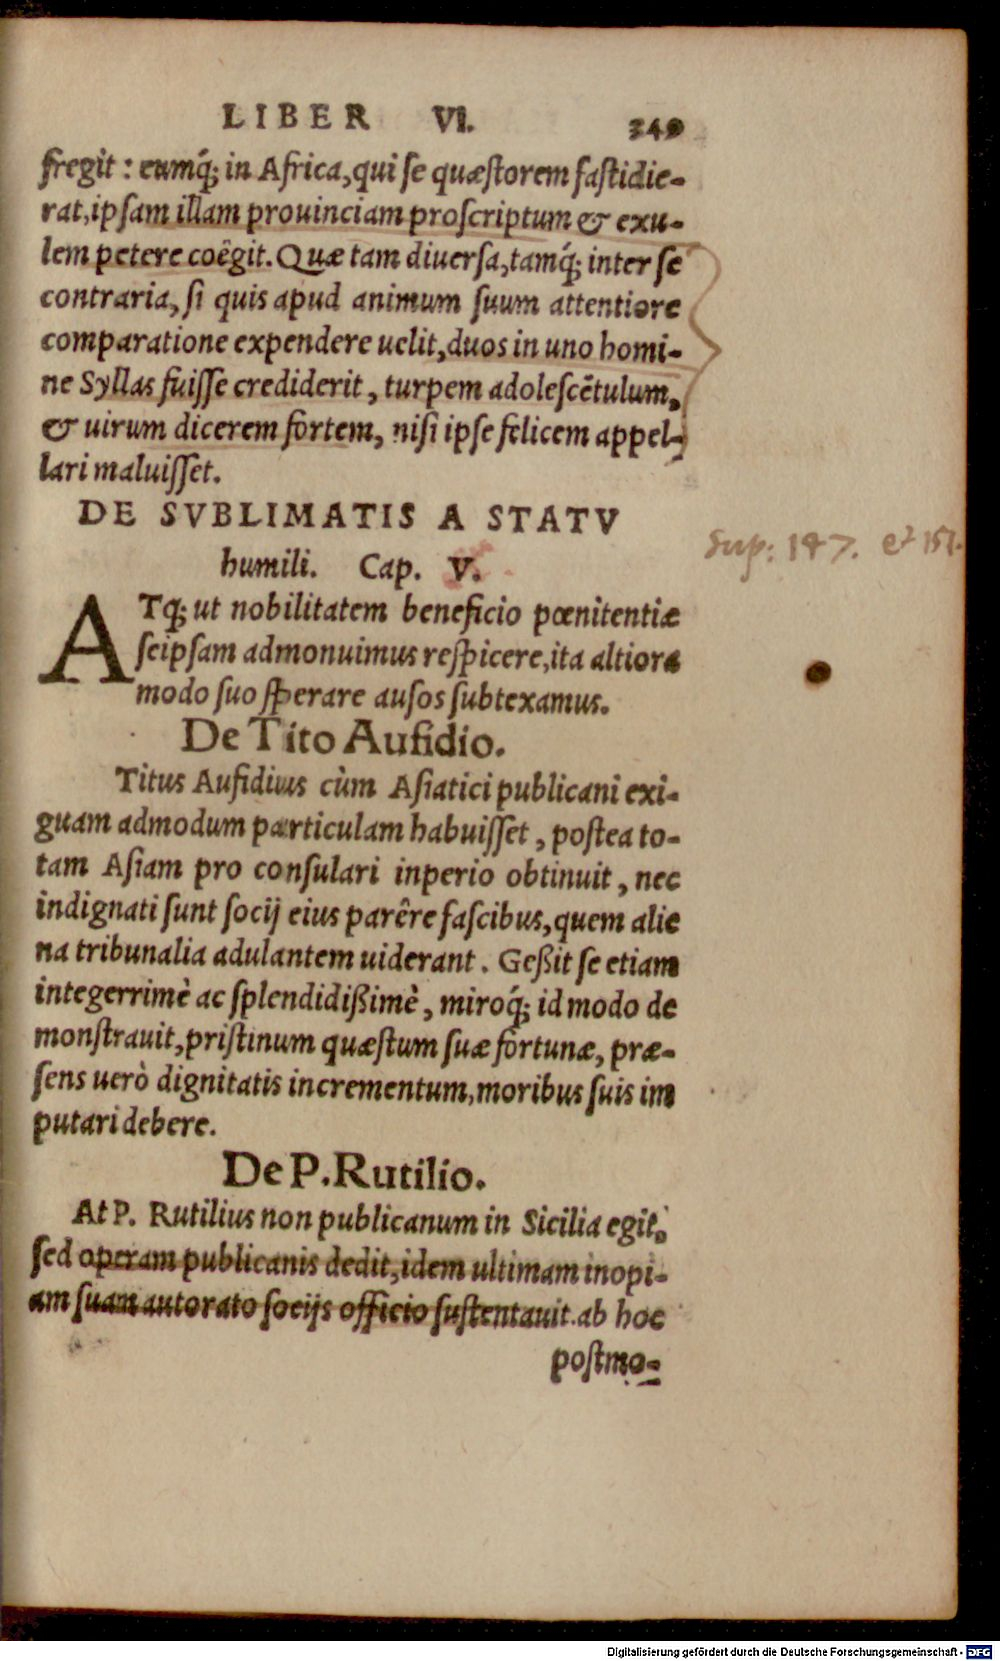 LIBER VI. 249
fregit : eumq́; in Africa, qui se quæstorem fastidie-
rat, ipsam illam prouinciam proscriptum & exu-
lem petere coëgit. Quæ tam diuersa, tamq́; inter se
contraria, si quis apud animum suum attentiore
comparatione expendere uelit, duos in uno homi-
ne Syllas fuisse crediderit, turpem adolescẽtulum,
& uirum dicerem fortem, nisi ipse felicem appel-
lari maluisset.
DE SVBLIMATIS A STATV
humili. Cap. V.
Sup: 147. et 151.
ATq; ut nobilitatem beneficio pœnitentiæ
seipsam admonuimus respicere, ita altiora
modo suo sperare ausos subtexamus.
De Tito Aufidio.
Titus Aufidius cùm Asiatici publicani exi-
guam admodum particulam habuisset, postea to-
tam Asiam pro consulari inperio obtinuit, nec
indignati sunt socij eius parêre fascibus, quem alie
na tribunalia adulantem uiderant. Geßit se etiam
integerrimè ac splendidißimè, miroq́; id modo de
monstrauit, pristinum quæstum suæ fortunæ, præ-
sens uerò dignitatis incrementum, moribus suis im
putari debere.
De P. Rutilio.
At P. Rutilius non publicanum in Sicilia egit,
sed operam publicanis dedit, idem ultimam inopi-
am suam autorato socijs officio sustentauit. ab hoc
postmo-
Digitalisierung gefördert durch die Deutsche Forschungsgemeinschaft - DFG